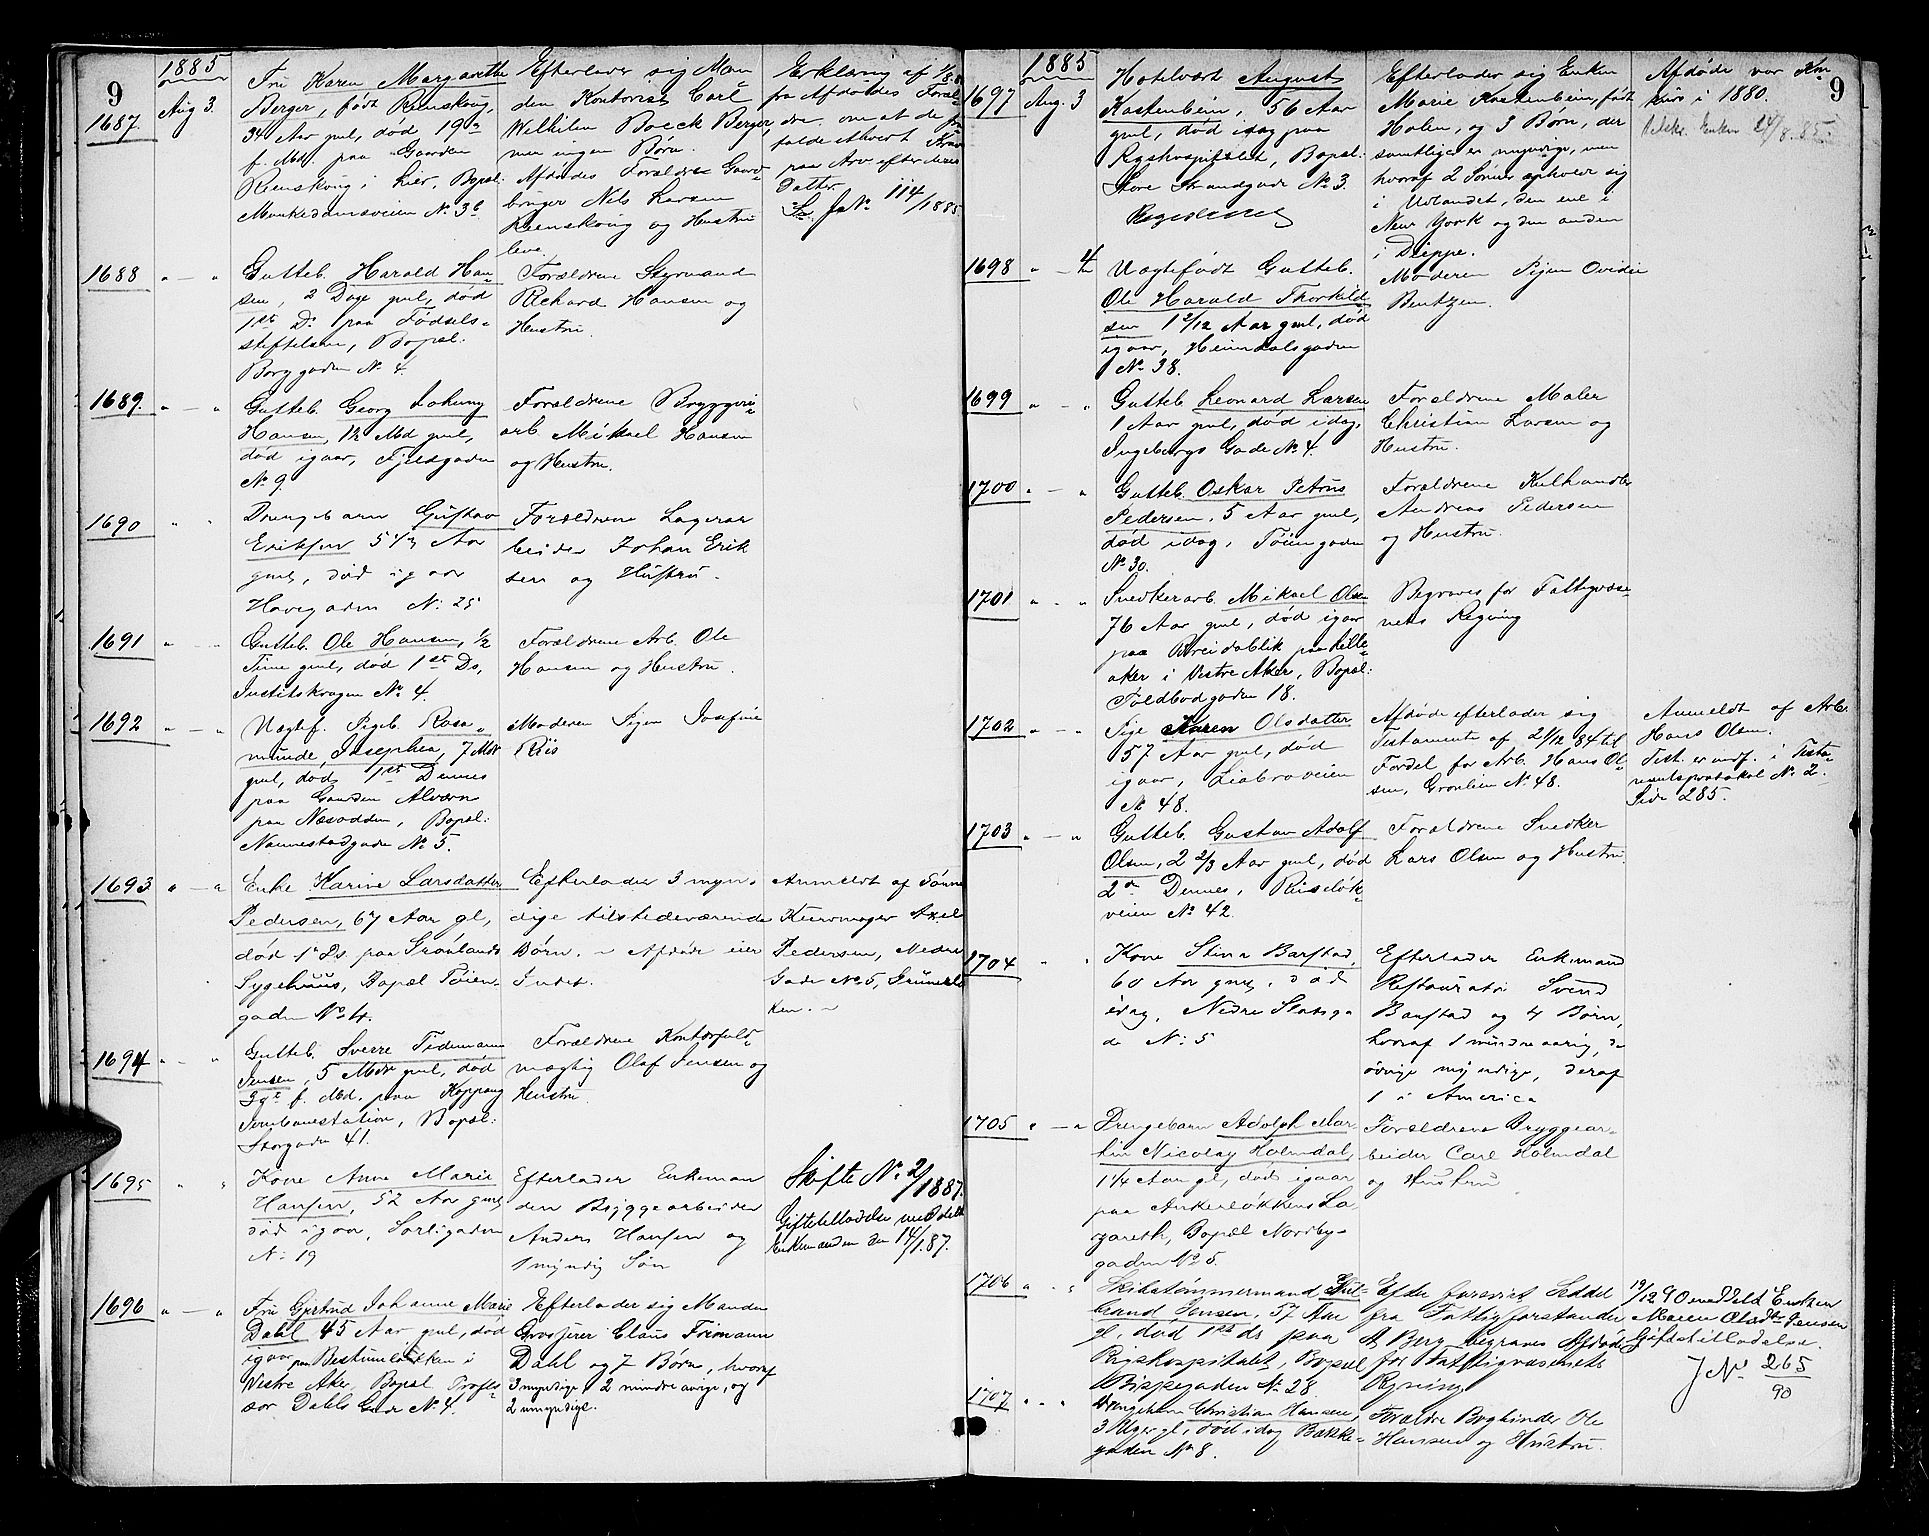 9
1885
1687.
Aug 3.
Fru Karen Margarethe
Berger, født Reenskoug,
34 Aar gml, død 19de
f. Md. paa Gaarden
Reenskoug i Lier, Bopæl:
Munkedamsveien No 36
Efterlader sig Man
den Kontorist Carl
Wilhelm Boeck Berger,
men ingen Børn.
Afdødes Forældre Gaard-
bruger Nils Larsen
Reenskoug og Hustru
leve.
Erklæring af
fra Afdødes Foræl-
dre om at de fra
falde ethvert Krav
paa Arv efter deres
Datter
114/1885
1688
" — "
Gutteb. Harald Han
sen, 2 Dage gml, død
1ste Ds paa Fødsels-
stiftelsen, Bopæl:
Borggaden No 4.
Forældrene Styrmand
Richard Hansen og
Hustru.
1689.
" — "
Gutteb. Georg Johnny
Hansen, 1½ Md gml,
død igaar, Fjeldgaden
No 9.
Forældrene Bryggeri-
arb. Mikael Hansen
og Hustru.
1690
" "
Drengebarn Gustav
Eriksen 5 1/3 Aar
gml, død igaar
Havegaden No 25
Forældrene Lagerar
beider Johan Erik
sen og Hustru.
1691
" — "
Gutteb. Ole Hansen, ½
Time gml, død 1ste Ds,
Justitskrogen No 4.
Forældrene Arb. Ole
Hansen og Hustru.
1692
" — "
Uægtef. Pigeb. Rosa-
munde Josephea, 7 Mdr
gml, død 1ste Dennes
paa Gaarden Alværn
paa Næsodden, Bopæl:
Nannestadgade No 5.
Moderen Pigen Josefine
Riis
1693
" — "
Enke Karine Larsdatter
Pedersen, 67 Aar gl,
død 1ste Ds. paa Grønlands
Sygehuus, Bopæl Tøien-
gaden No 4.
Efterlader 3 myn-
dige tilstedeværende
Børn. - Afdøde eier
Intet.
Anmeldt af Sønnen
Kurvmager Axel
Pedersen, Nedre
Gade No 5, Grünerløk
ken. -
1694
" — "
Gutteb. Sverre Tidemann
Jensen, 5 Mdr gml, død
39te f. Md. paa Koppang
Jernbanestation, Bopæl:
Storgaden 41.
Forældrene Kontorfuld-
mægtig Olaf Jensen og
Hustru.
1695
" "
Kone Anne Marie
Hansen, 52 Aar gml
død igaar, Sorligaden
No 19
Efterlader Enkeman
den Bryggearbeider
Anders Hansen og
1 myndig Søn
Skifte No 2/1887.
Giftetilladelse meddelt
Enkemanden den 14/1.87.
1696
" — "
Fru Gjertrud Johanne Marie
Dahl 45 Aar gml, død
igaar paa Bestumløkken i
Vestre Aker, Bopæl Profes-
sor Dahls Gade No 4.
Efterlader sig Manden
Grosserer Claus Firmann
Dahl og 7 Børn, hvoraf
3 myndige, 2 mindreaarige, og
2 umyndige.
9
1885
1697
Aug. 3
Hotelvært August
Kastenbein, 56 Aar
gml, død idag paa
Rigshospitalet, Bopæl:
Store Strandgade No 3.
Efterlader sig Enken
Marie Kastenbein, født
Holen, og 3 Børn, der
samtlige er myndige, men
hvoraf 2 Sønner opholder sig
i Udlandet, den ene i
New York og den anden
i Dieppe.
Afdøde var Kon
kurs i 1880.
Enken 24/8.85.
1698
" — 4
Uægtefødt Gutteb.
Ole Harald Thorkild
sen 1 2/12 Aar gml, død
igaar, Heimdalsgaden
No 38.
Moderen Pigen Ovidie
Bentzen.
1699
" — "
Gutteb. Leonard Larsen
1 Aar gml, død idag,
Ingeborgs Gade No 4.
Forældrene Maler
Christian Larsen og
Hustru.
1700
" — "
Gutteb. Oskar Petrus
Pedersen, 5 Aar gml,
død idag, Tøiengaden
No 30.
Forældrene Kulhandler
Andreas Pedersen
og Hustru.
1701
" "
Snedkerarb. Mikael Olsen
76 Aar gml, død igaar
paa Breidablik paa Lille-
aker i Vestre Aker, Bopæl:
Toldbodgaden 18.
Begraves for Fattigvæse-
nets Regning
1702
" — "
Pige Karen Olsdatter
57 Aar gml, død
igaar, Liabroveien
No 48.
Afdøde efterlader sig
Testamente af 21/12 84 til
Fordel for Arb. Hans Ol-
sen, Grønlien No 48.
Anmeldt af Arb.
Hans Olsen.
Test. er indf. i Testa-
mentsprotokol No 2.
Side 285.
1703
" — "
Gutteb. Gustav Adolf
Olsen, 2 2/3 Aar gml, død
2den Dennes, Ruseløk-
veien No 42.
Forældrene Snedker
Lars Olsen og Hustru.
1704
" "
Kone Stina Barstad,
60 Aar gml, død
idag, Nedre Slotsga
de No 5
Efterlader Enkemand
Restauratør Svend
Barstad og 4 Børn,
hvoraf 1 mindreaarig, de
øvrige myndige, deraf
1 i America
1705
" — "
Drengebarn Adolph Mar
tin Nicolay Holmdal,
1 1/4 Aar gl, død igaar
paa Ankerløkkens La
zareth, Bopæl Nordby-
gaden No 5.
Forældrene Bryggear-
beider Carl Holmdal
og Hustru
1706
" "
Skibstømmermand Hil-
brand Jensen, 57 Aar
gl, død 1ste ds paa
Rigshospitalet, Bopæl
Bispegaden No 28.
Efter forevist Seddel
fra Fattigforstander
A. Berg begraves Afdøde
for Fattigvæsenets
Regning
19/12 90 meddelt Enken
Maren Olsdtr Jensen
Giftetilladelse.
JNo 265/90
1707
" "
Drengebarn Christian Hansen,
3 Uger gl, død idag Bakke-
gaden No 8.
Forældre Bogbinder Ole
Hansen og Hustru.